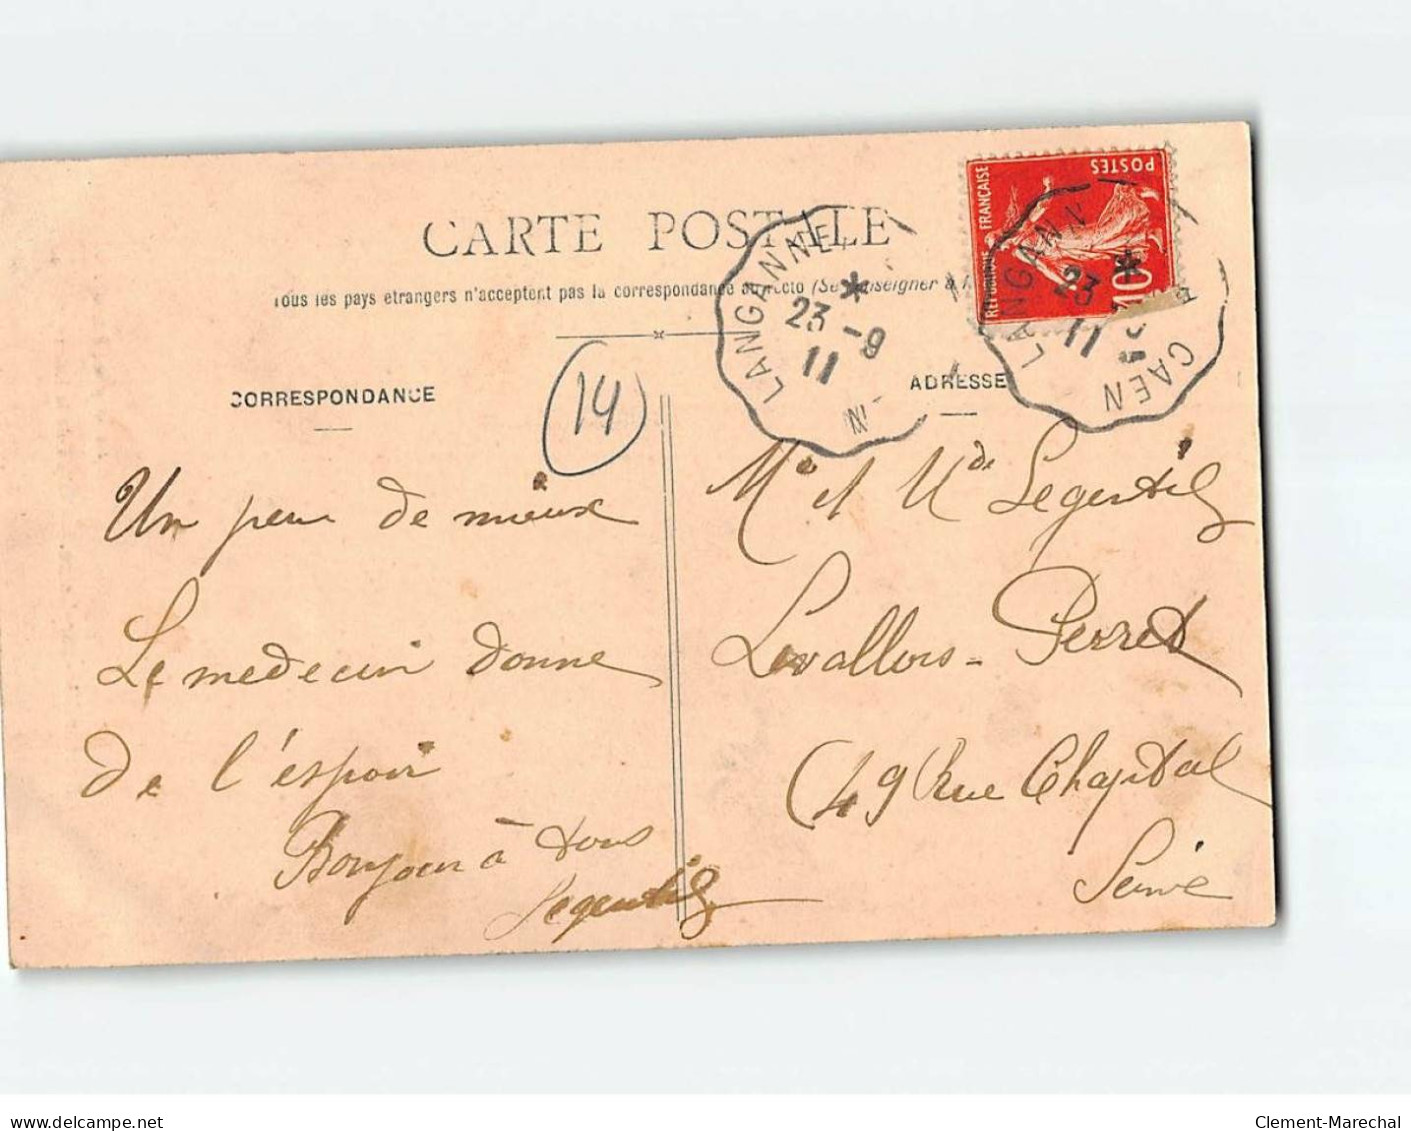 CARTE POSTALE
Tous les pays étrangers n'acceptent pas la correspondance au recto (Se renseigner à
CORRESPONDANCE
14
ADRESSE
POSTES
FRANÇAISE
10
LANGANNE
23 -9
11
LANGANN
CAEN
23
11
Un peu de mieux
Le medecin donne
de l'espoir
Bonjour à tous
Legentil
Mr et Mde Legentil
Levallois-Perret
49 Rue Chaptal
Seine
delcampe.net
Clement-Marechal